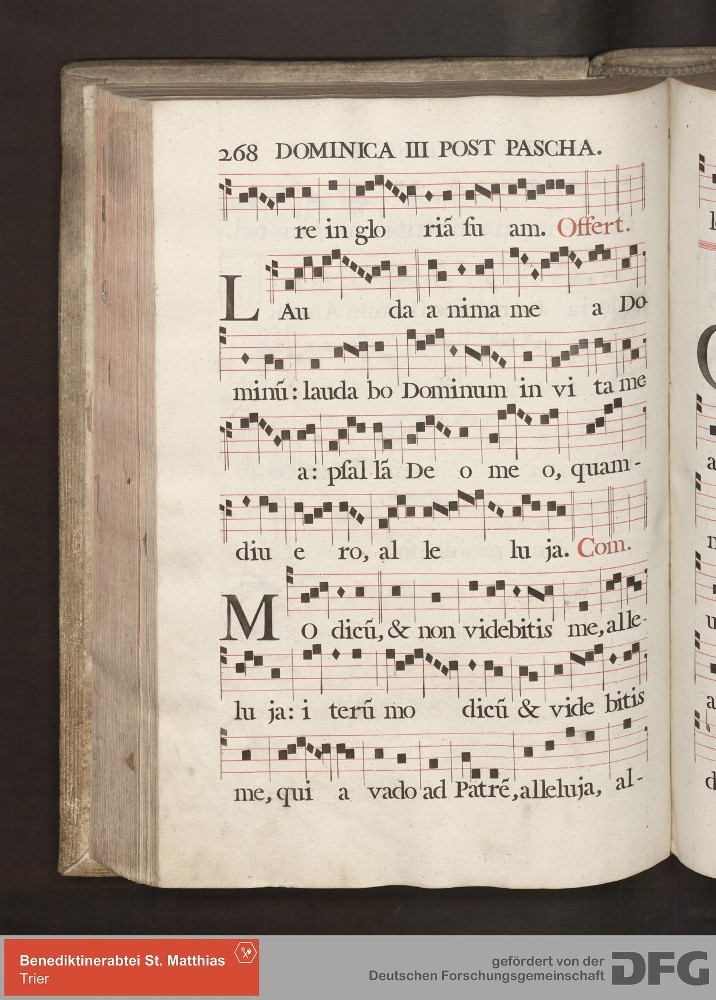 268 DOMINICA III POST PASCHA.
re in glo riã su am. Offert.
LAu da a nima me a Do-
minũ: lauda bo Dominum in vi ta me
a: psal lã De o me o, quam-
diu e ro, al le lu ja. Com.
MO dicũ, & non videbitis me, alle-
lu ja: i terũ mo dicũ & vide bitis
me, qui a vado ad Patrẽ, alleluja, al-
Benediktinerabtei St. Matthias
Trier
gefördert von der
Deutschen Forschungsgemeinschaft DFG